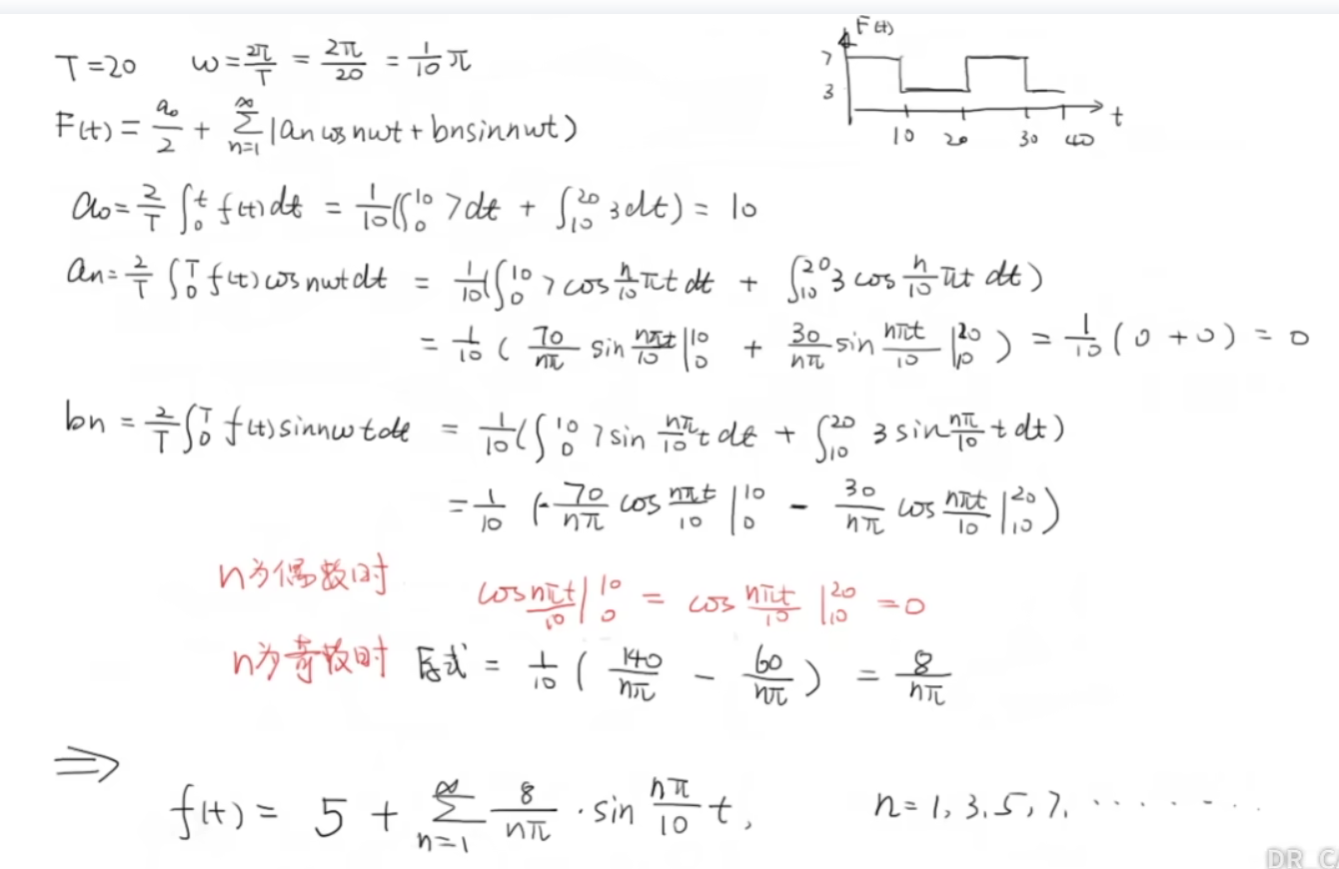 T=20 ω=2π/T = 2π/20 = 1/10 π
F(t)
7
3
10 20 30 40 t
F(t) = a₀/2 + ∑_{n=1}^{∞} (an cos nωt + bn sin nωt)
a₀ = 2/T ∫₀ᵗ f(t)dt = 1/10 (∫₀¹⁰ 7dt + ∫₁₀²⁰ 3dt) = 10
an = 2/T ∫₀ᵀ f(t) cos nωt dt = 1/10 (∫₀¹⁰ 7 cos n/10 πt dt + ∫₁₀²⁰ 3 cos n/10 πt dt)
= 1/10 ( 70/nπ sin nπt/10 |₀¹⁰ + 30/nπ sin nπt/10 |₁₀²⁰ ) = 1/10 (0 + 0) = 0
bn = 2/T ∫₀ᵀ f(t) sin nωt dt = 1/10 (∫₀¹⁰ 7 sin nπ/10 t dt + ∫₁₀²⁰ 3 sin nπ/10 t dt)
= 1/10 (-70/nπ cos nπt/10 |₀¹⁰ - 30/nπ cos nπt/10 |₁₀²⁰)
n为偶数时 cos nπt/10 |₀¹⁰ = cos nπt/10 |₁₀²⁰ = 0
n为奇数时 原式 = 1/10 ( 140/nπ - 60/nπ ) = 8/nπ
⇒
f(t) = 5 + ∑_{n=1}^{∞} 8/nπ · sin nπ/10 t, n = 1, 3, 5, 7, ········
DR_CA